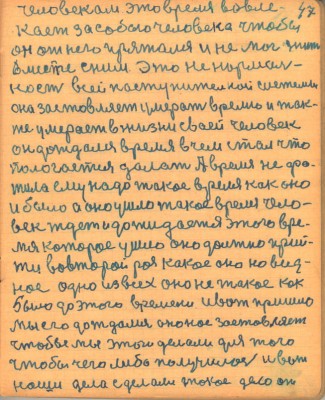 человекам это время вовле- 47
кает за собою человека чтобы
он от него прятался и не мог жить
вместе с ним это не нормаль-
кость всей наступителной системы
она заставляет умерать время и так-
же умерает в жизни своей человек
он дождался время в чем стал что
пологается делат А время не
ему надо такое время как оно
и было а оно ушло такое время чело-
век ждет и дожидается этого вре-
мя которое ушло оно должно прий-
ти во второй роз какое оно не вид-
ное одно из всех оно не такое как
было до этого времени и вот пришло
мы его дождался оно нас заставляет
чтобы мы этои делали для того
чтобы чего либо получилося и вот
наши дела сделали такое дело он